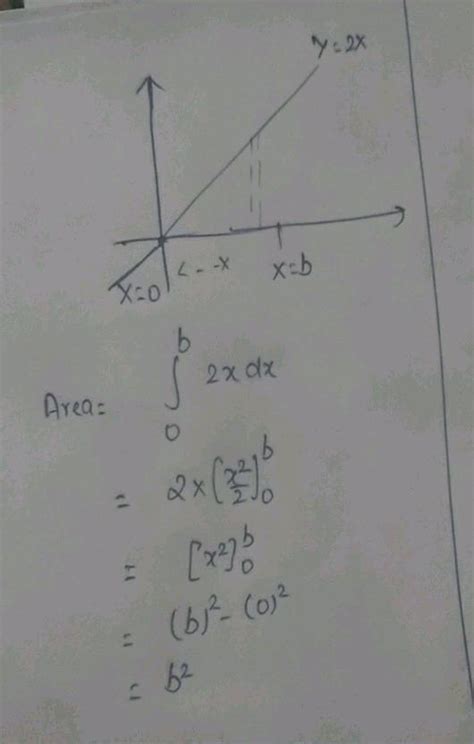 y=2x
x=0
<--x
x=b
Area= ∫₀ᵇ 2x dx
= 2×[x²/2]₀ᵇ
= [x²]₀ᵇ
= (b)²-(0)²
= b²